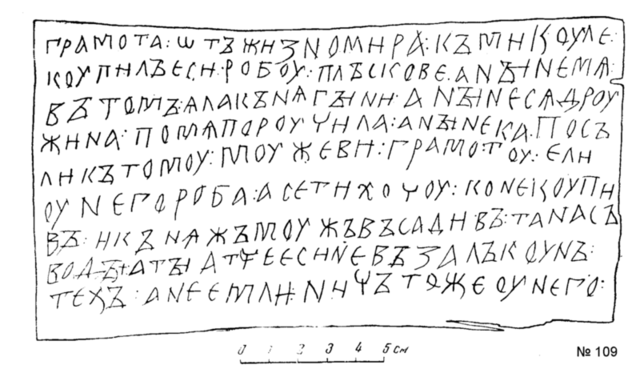 грамота : ѡтъ жизномира : къ микоуле :
коупилъ еси : робоу : плъскове : а нъıне мѧ :
въ томъ : ѧла кънѧгъıни : а нъıне сѧ дроу
жина : по мѧ пороучила : а нъıне ка : посъ
ли къ томоу : моужеви : грамотоу : е ли
оу него роба : а се ти хочоу : коне коупи
въ : и кънѧжъ моужъ въсадивъ : та на съ
водъı : а тъı атче еси не възалъ коунъ :
техъ : а не емли : ничъто же оу него :
0 1 2 3 4 5 см
№ 109